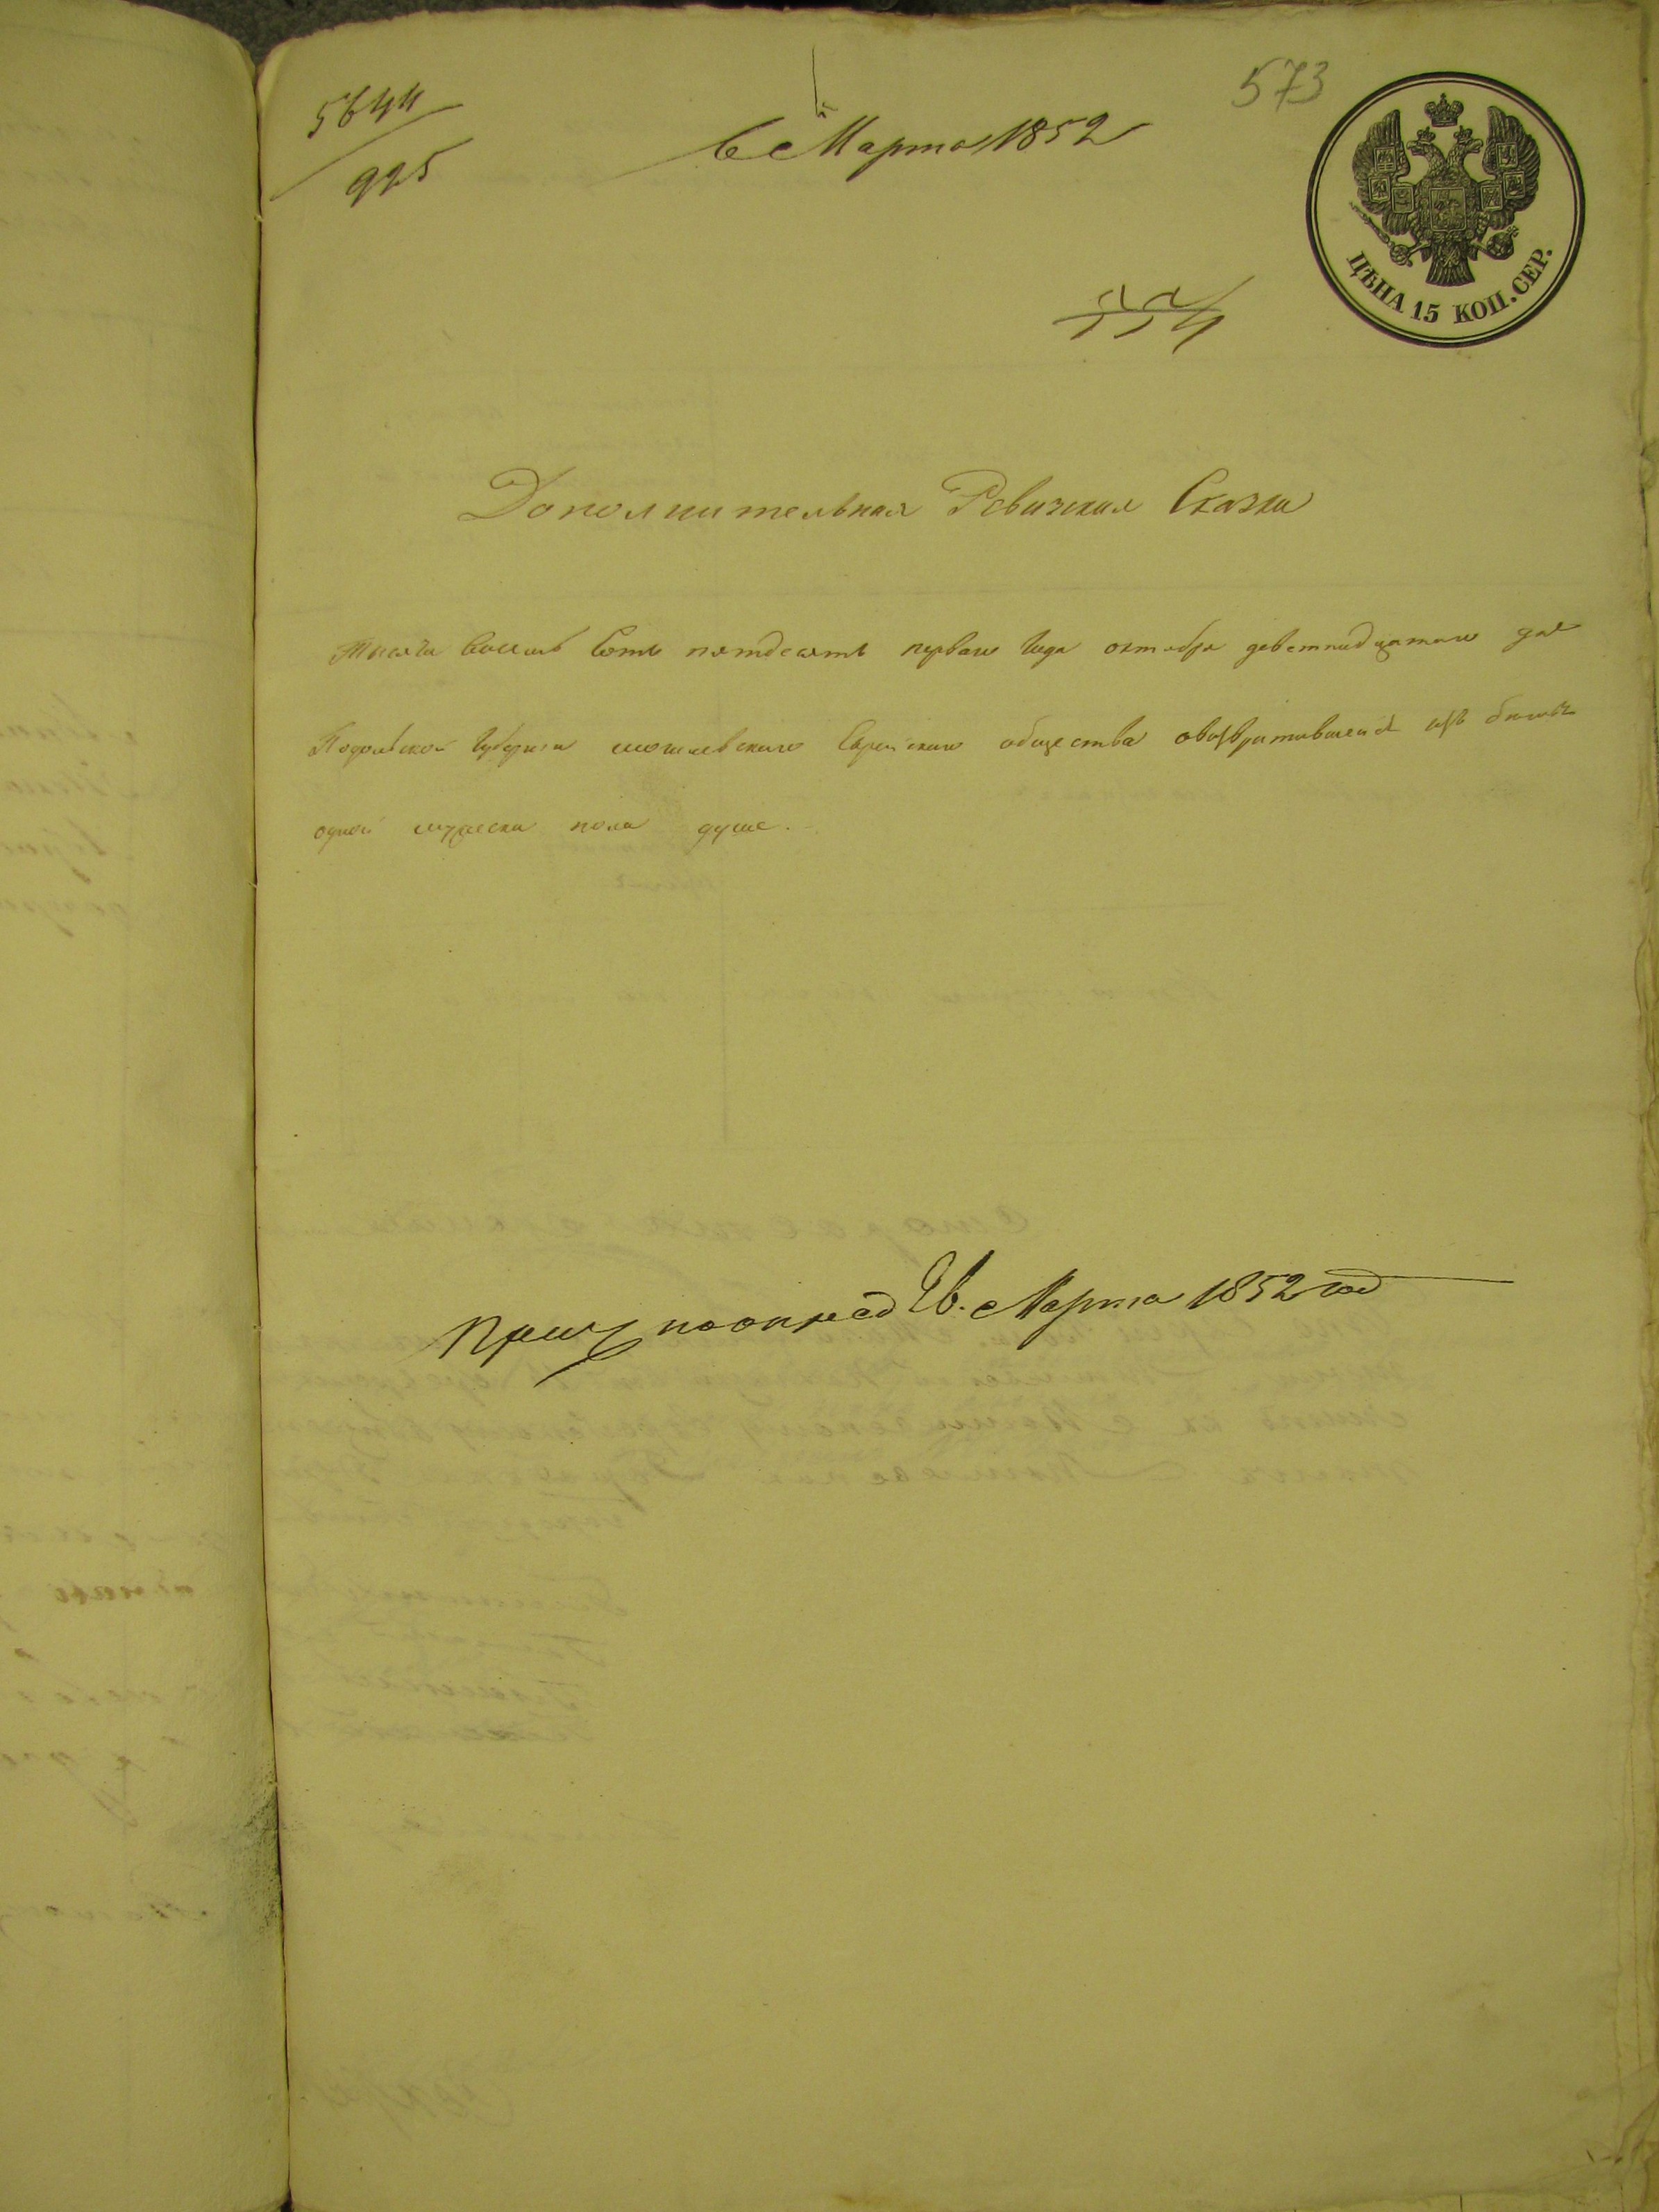 5644
925
6 Марта 1852
573
ЦѢНА 15 КОП. СЕР.
554
Дополнительная Ревизская Сказка
Тысяча восемь сотъ пятдесятъ перваго года октября девятнадцатаго дня
Подольской губернии могилевскаго Еврейскаго общества овозвратившейся изъ бѣговъ
одной мужеска пола душе.
Марта 1852 год